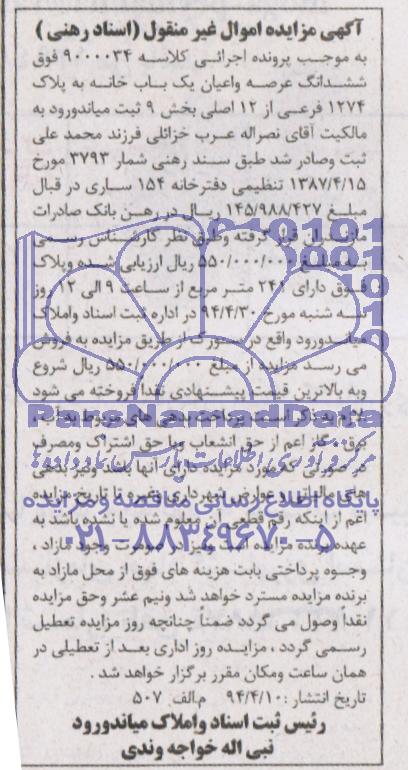 آگهی مزایده اموال غیر منقول (اسناد رهنی)
به موجب پرونده اجرائی کلاسه ۹۰۰۰۰۳۴ فوق
ششدانگ عرصه واعیان یک باب خانه به پلاک
۱۲۷۴ فرعی از ۱۲ اصلی بخش ۹ ثبت میاندورود به
مالکیت آقای نصراله عرب خزائلی فرزند محمد علی
ثبت وصادر شد طبق سند رهنی شمار ۳۷۹۳ مورخ
۱۳۸۷/۴/۱۵ تنظیمی دفترخانه ۱۵۴ ساری در قبال
مبلغ ۱۴۵/۹۸۸/۴۲۷ ریال در رهن بانک صادرات
مازندران قرار گرفته وطبق نظر کارشناس رسمی
به مبلغ ۵۵۰/۰۰۰/۰۰۰ ریال ارزیابی شده وپلاک
فوق دارای ۲۴۱ متر مربع از ساعت ۹ الی ۱۲ روز
سه شنبه مورخ ۹۴/۴/۳۰ در اداره ثبت اسناد واملاک
میاندورود واقع در سورک از طریق مزایده به فروش
می رسد مزایده از مبلغ ۵۵۰/۰۰۰/۰۰۰ ریال شروع
وبه بالاترین قیمت پیشنهادی نقدا فروخته می شود
لازم به ذکر است پرداخت بدهی های مربوط به آب،
برق، گاز اعم از حق انشعاب ویا حق اشتراک ومصرف
در صورتی که مورد مزایده دارای آنها باشد ونیز بدهی
های مالیاتی و عوارض شهرداری وغیره تا تاریخ مزایده
اعم از اینکه رقم قطعی آن معلوم شده یا نشده باشد به
عهده برنده مزایده است ونیز در صورت وجود مازاد ،
وجوه پرداختی بابت هزینه های فوق از محل مازاد به
برنده مزایده مسترد خواهد شد ونیم عشر وحق مزایده
نقدا وصول می گردد ضمناً چنانچه روز مزایده تعطیل
رسمی گردد ، مزایده روز اداری بعد از تعطیلی در
همان ساعت ومکان مقرر برگزار خواهد شد .
تاریخ انتشار : ۹۴/۴/۱۰ م.الف ۵۰۷
رئیس ثبت اسناد واملاک میاندورود
نبی اله خواجه وندی
ParsNamadData
مرکز فرآوری اطلاعات پارس نماد داده ها
پایگاه اطلاع رسانی مناقصه و مزایده
۰۲۱-۸۸۳۴۹۶۷۰-۵